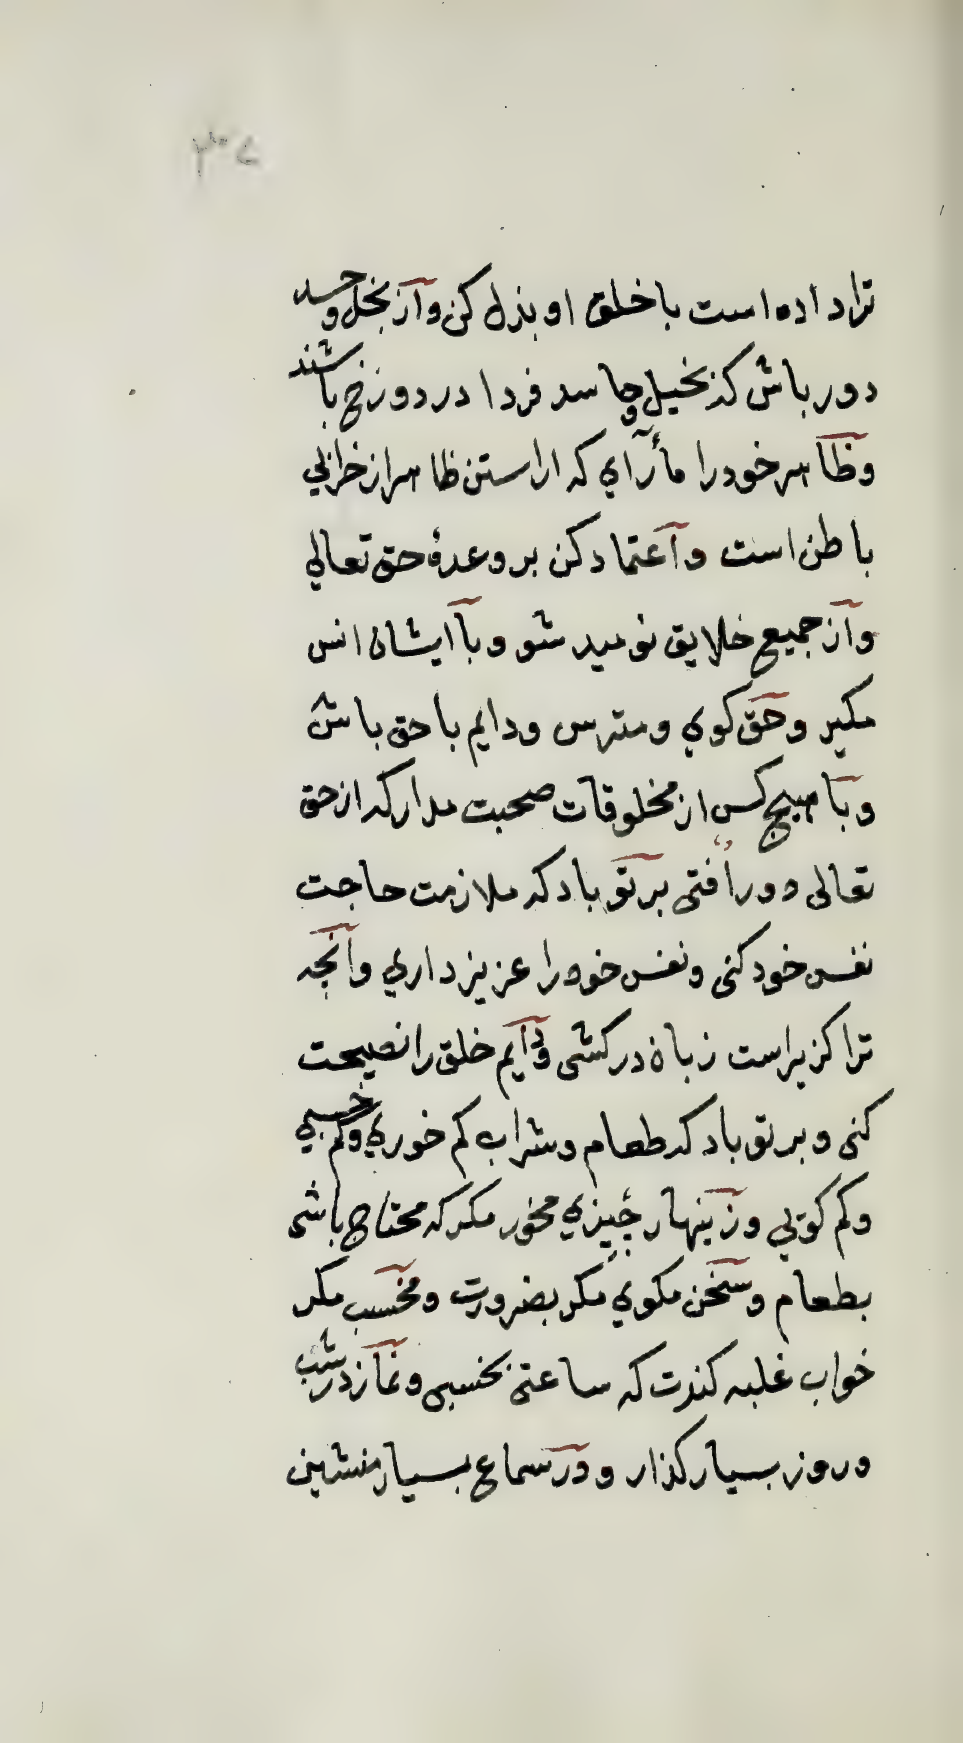 ۳۰۷
تراداده است با خلق او بذل کن و از بخل و حسد
دور باش که بخیل و حاسد فردا در دوزخ باشند
و ظاهر خود را مآرای که اراستن ظاهر از خرابی
باطن است و اعتماد کن بر وعدۀ حق تعالی
و از جمیع خلایق نومید شو و با ایشان انس
مکیر و حق کوی و مترس و دایم با حق باش
و با هیچ کس از مخلوقات صحبت مدار که از حق
تعالی دور افتی بر تو باد که ملازمت حاجت
نفس خود کنی و نفس خود را عزیز داری و آنچه
ترا کزیر است زبان درکشی و دایم خلق را نصیحت
کنی و بر تو باد که طعام و شراب کم خوری و کم خسبی
و کم کویی و زینهار چیزی مخور مکر که محتاج باشی
بطعام و سخن مکوی مکر بضرورت و مخسب مکر
خواب غلبه کندت که ساعتی بخسبی و نماز در شب
و روز بسیار کذار و در سماع بسیار منشین